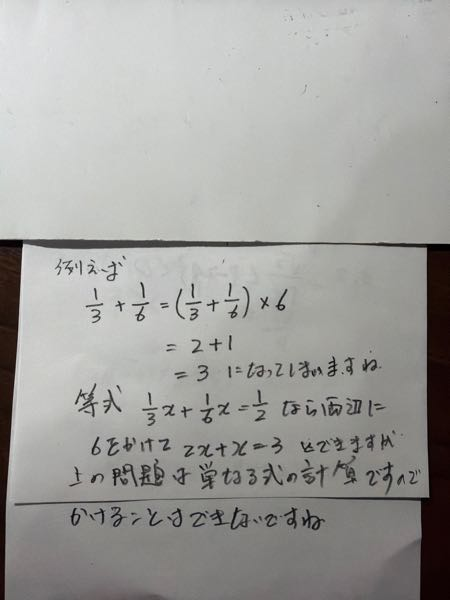 例えば
1/3 + 1/6 = (1/3 + 1/6) × 6
= 2+1
= 3 になってしまいますね
等式 1/3x + 1/6x = 1/2 なら両辺に
6をかけて 2x+x=3 とできますが
上の問題は単なる式の計算ですので
かけることはできないですね